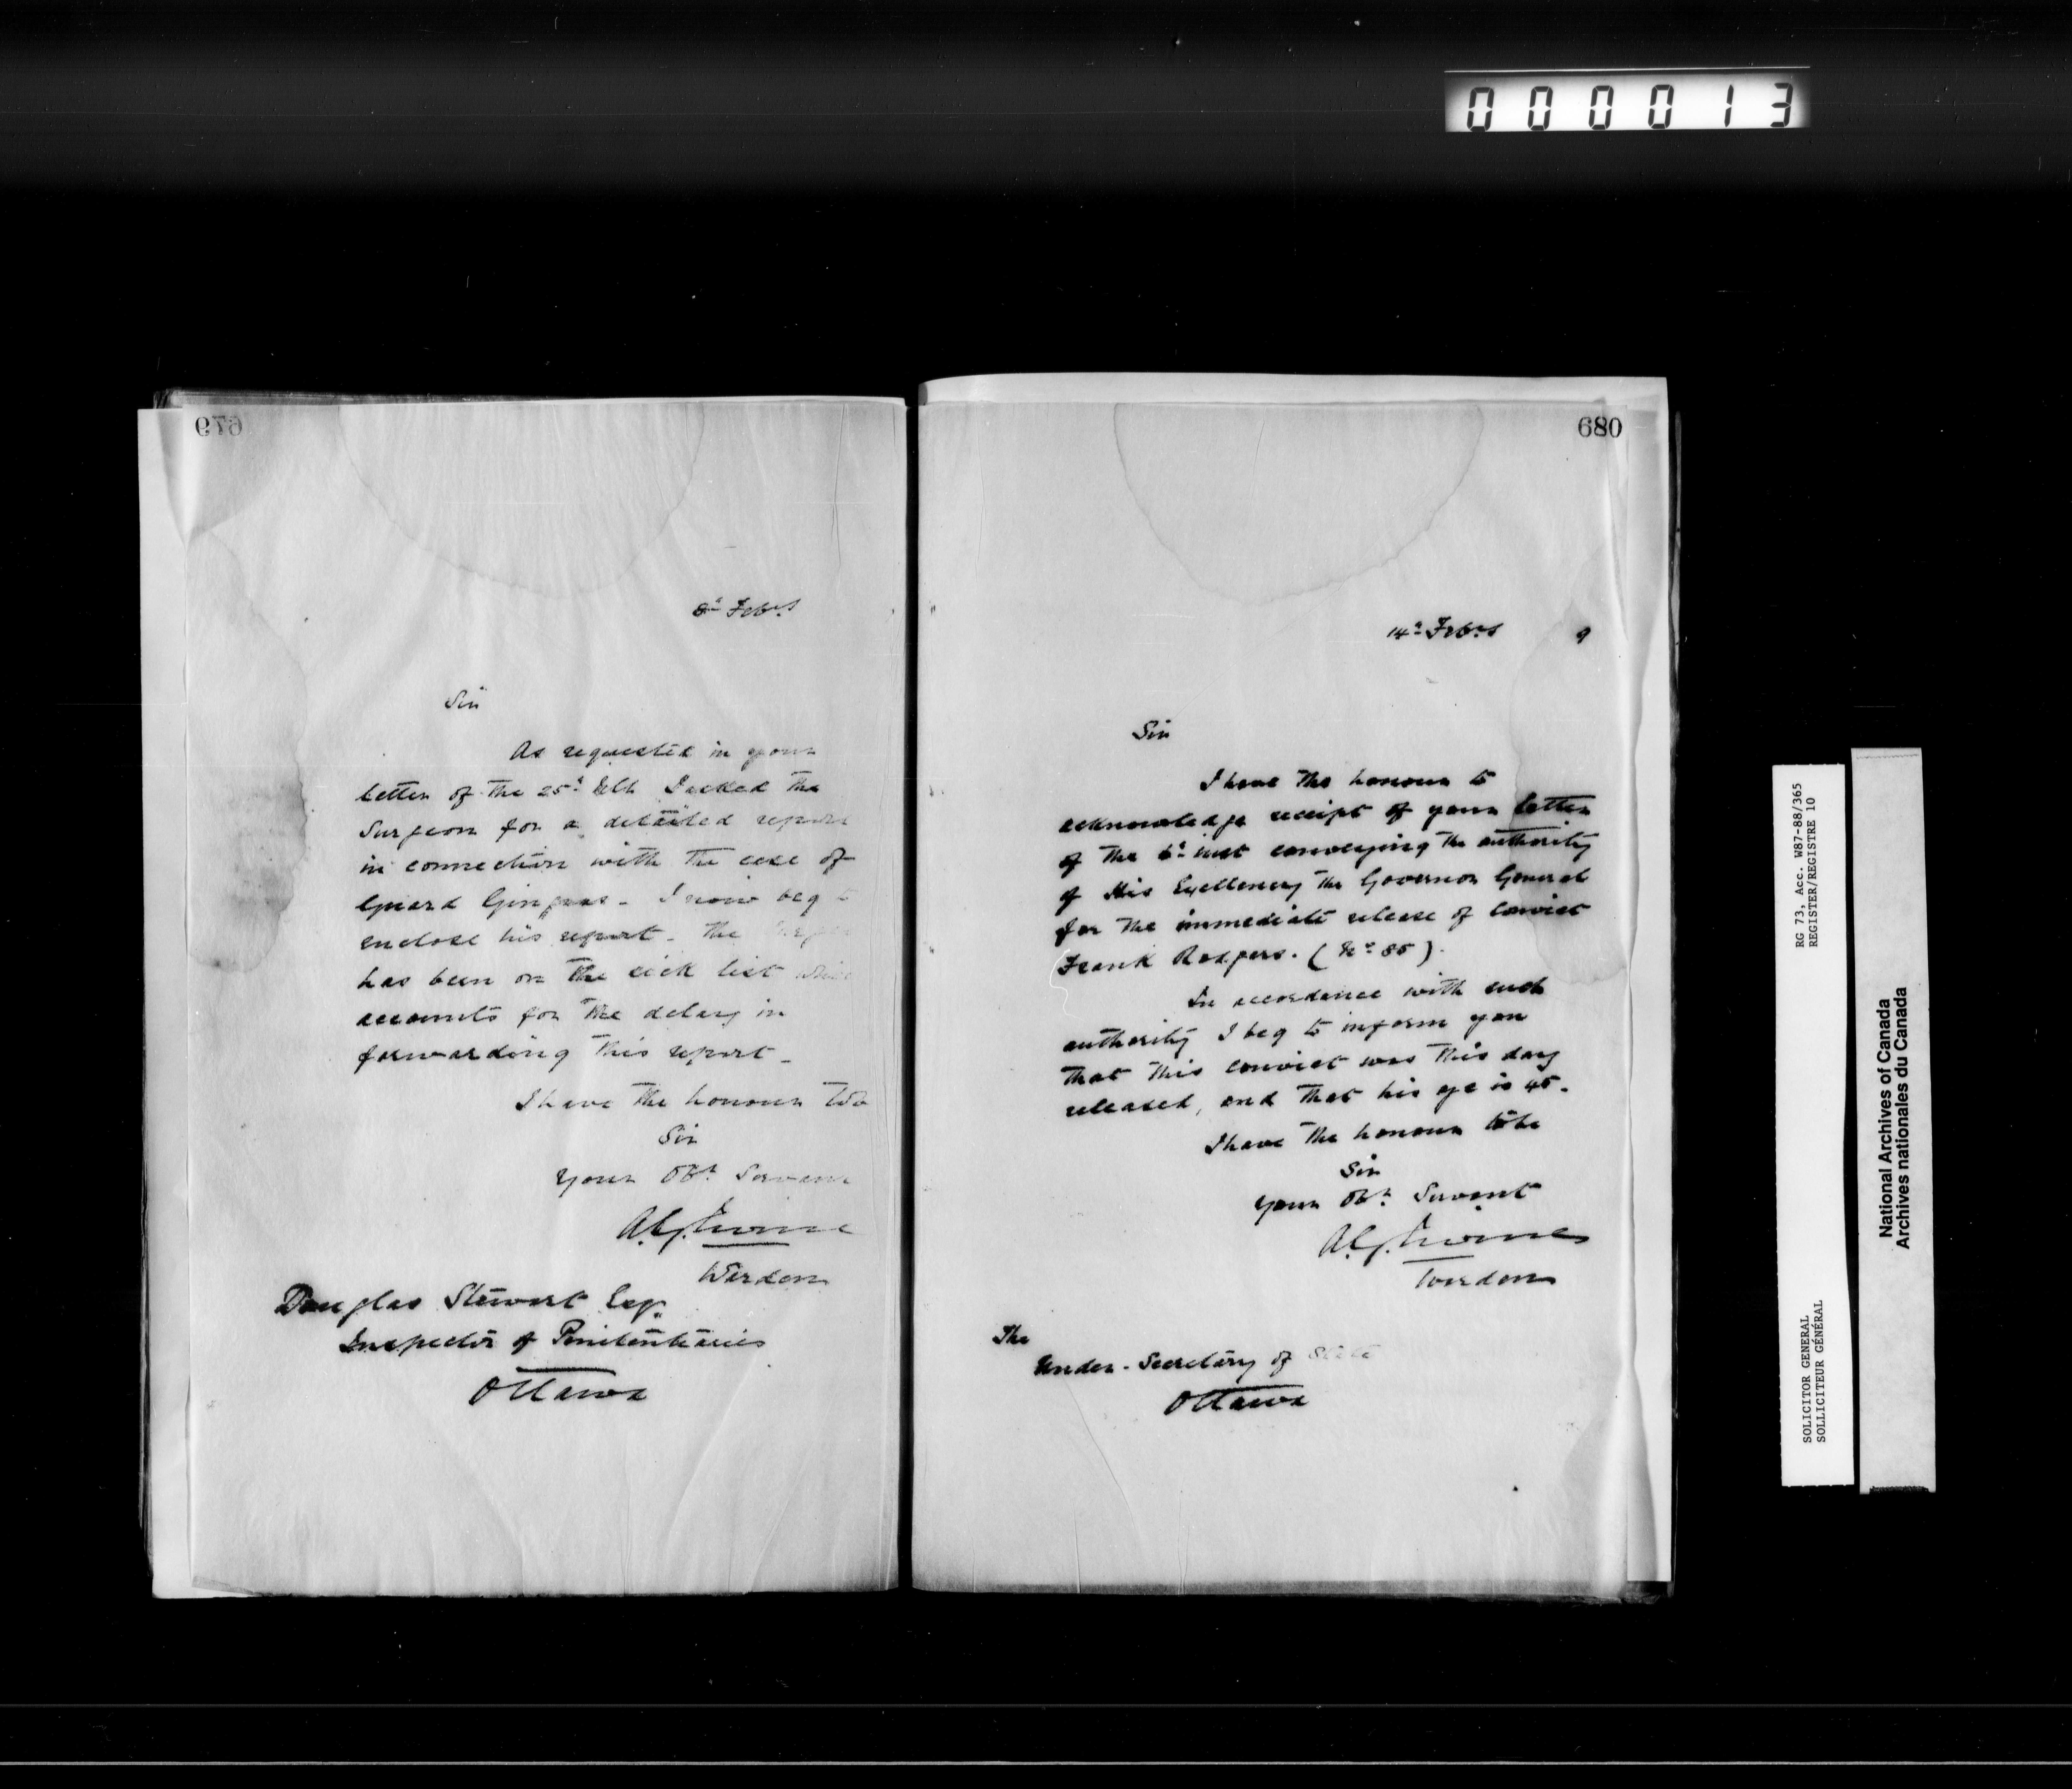 000013
679
8th Feby
Sir
As requested in your
letter of the 25th Ult I asked the
Surgeon for a detailed report
in connection with the case of
Guard Gingras - I now beg to
enclose his report - The
has been on the sick list which
accounts for the delay in
forwarding this report -
I have the honour to be
Sir
Your Obt. Servant
A.G. Irvine
Warden
Douglas Stewart Esq.
Inspector of Penitentiaries
Ottawa
680
14th Feby 9
Sir
I have the honour to
acknowledge receipt of your letter
of the 6th inst conveying the authority
of His Excellency the Governor General
for the immediate release of Convict
Frank Rodgers. (No 85).
In accordance with such
authority I beg to inform you
that this convict was this day
released, and that his age is 45.
I have the honour to be
Sir
Your Obt. Servant
A.G. Irvine
Warden
The
Under-Secretary of State
Ottawa
RG 73, Acc. W87-88/365
REGISTER/REGISTRE 10
SOLICITOR GENERAL
SOLLICITEUR GÉNÉRAL
National Archives of Canada
Archives nationales du Canada